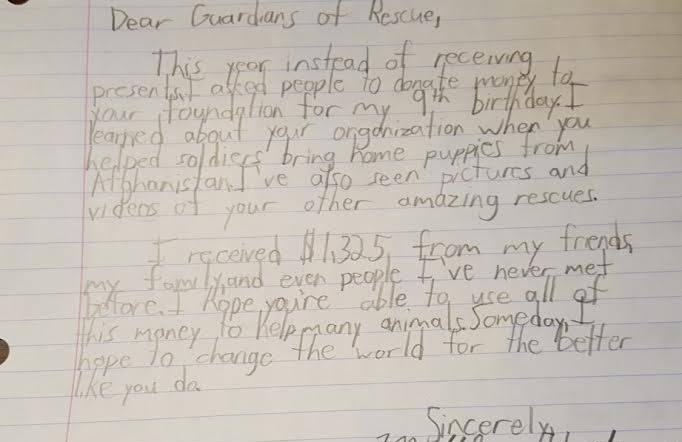 Dear Guardians of Rescue,
This year instead of receiving
presents,I asked people to donate money to
your foundation for my 9th birthday.I
learned about your organization when you
helped soldiers bring home puppies from
Afghanistan.I've also seen pictures and
videos of your other amazing rescues.
I received $1,325 from my friends,
my family,and even people I've never met
before.I hope you're able to use all of
this money to help many animals.Someday,I
hope to change the world for the better
like you do.
Sincerely,